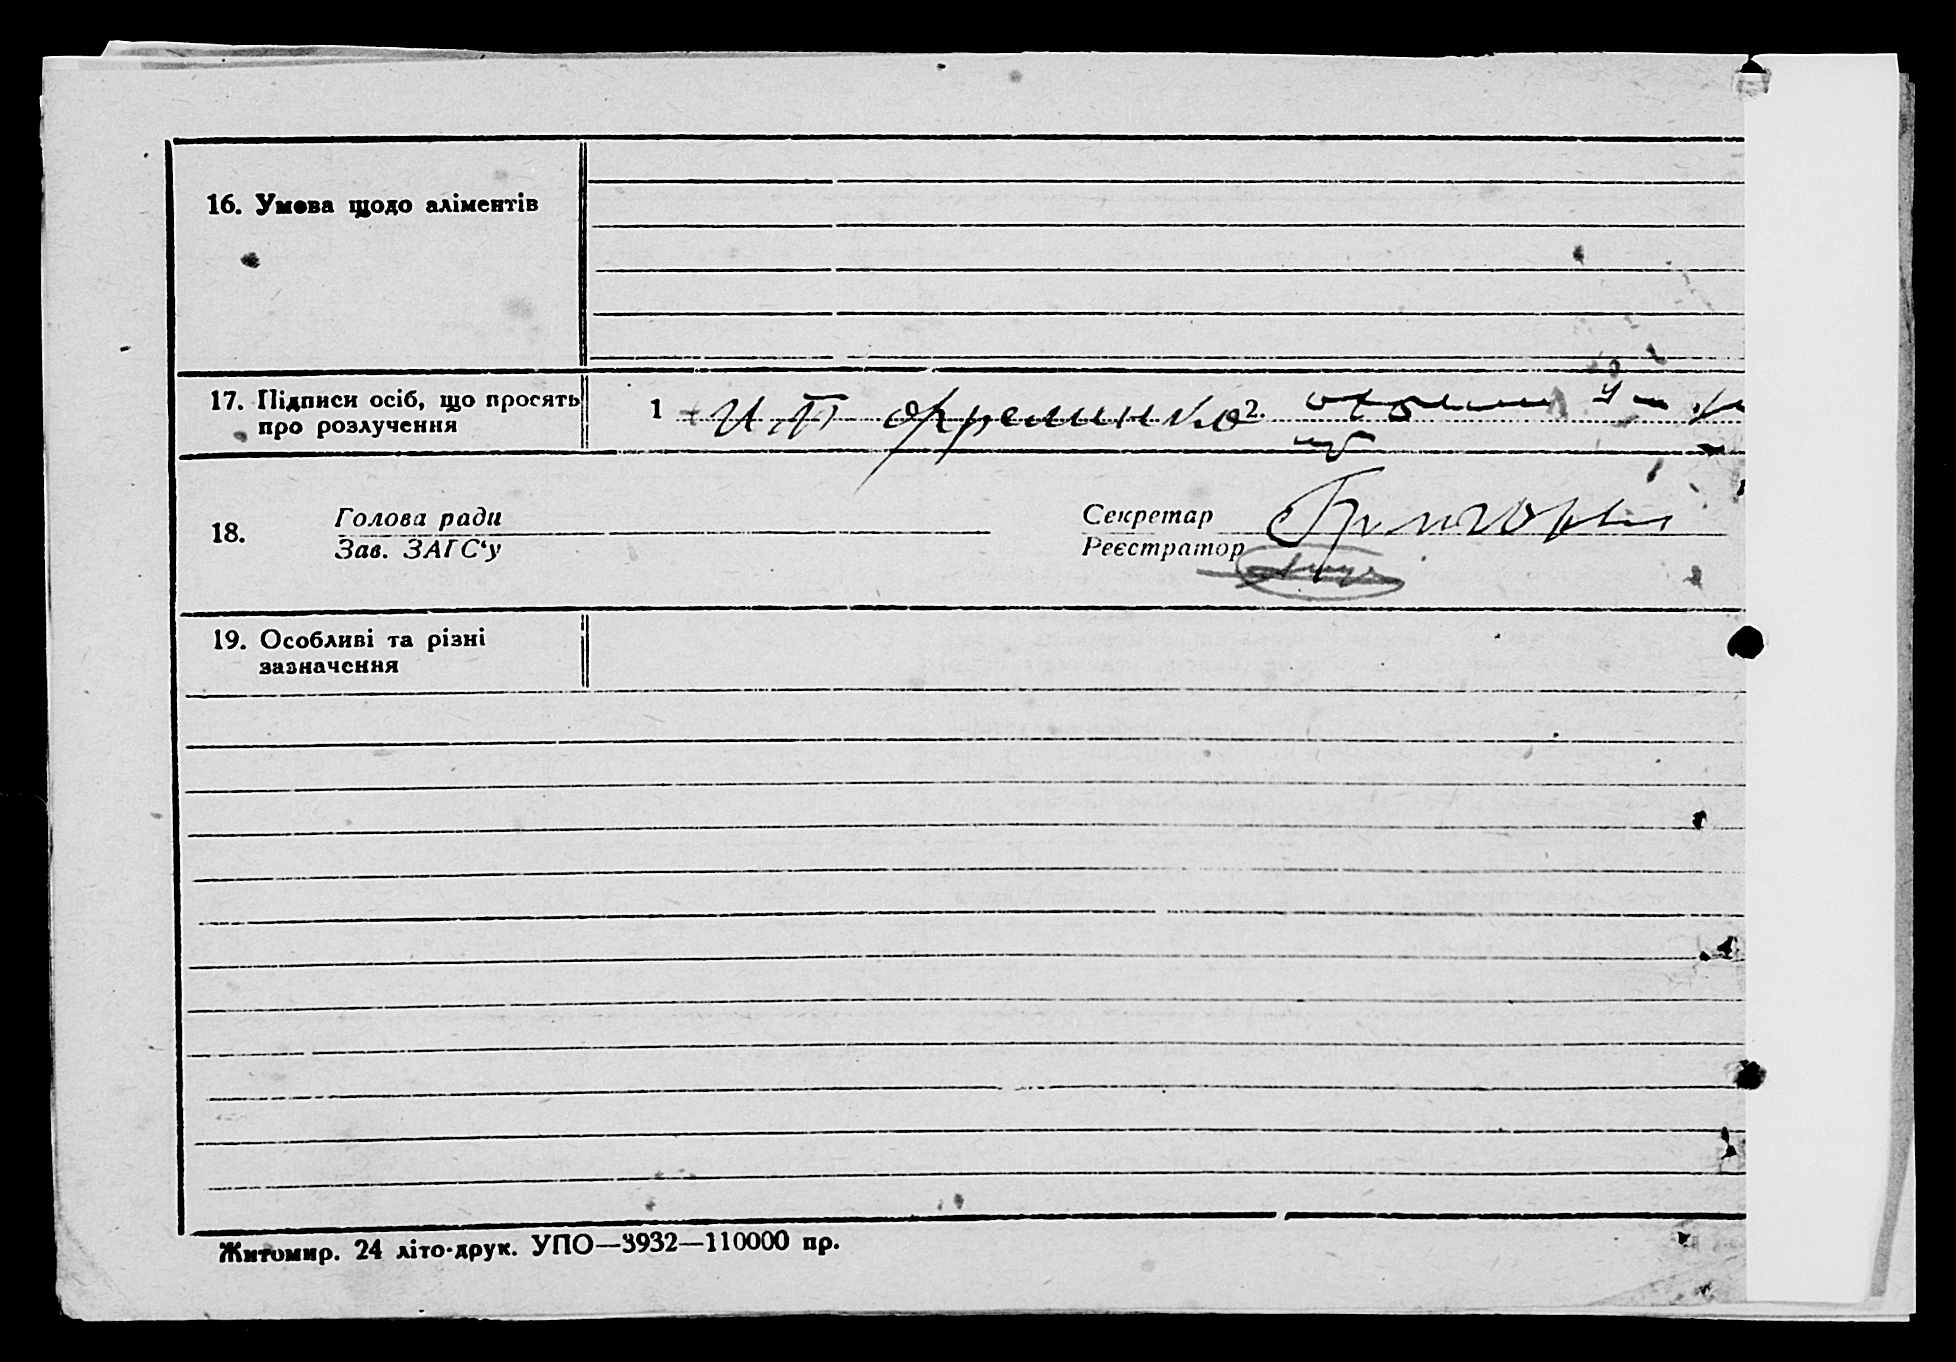 16. Умова щодо аліментів
17. Підписи осіб, що просять
про розлучення
1
2.
18.
Голова ради
Зав. ЗАГС‘у
Секретар
Реєстратор
19. Особливі та різні
зазначення
Житомир. 24 літо-друк. УПО—3932—110000 пр.